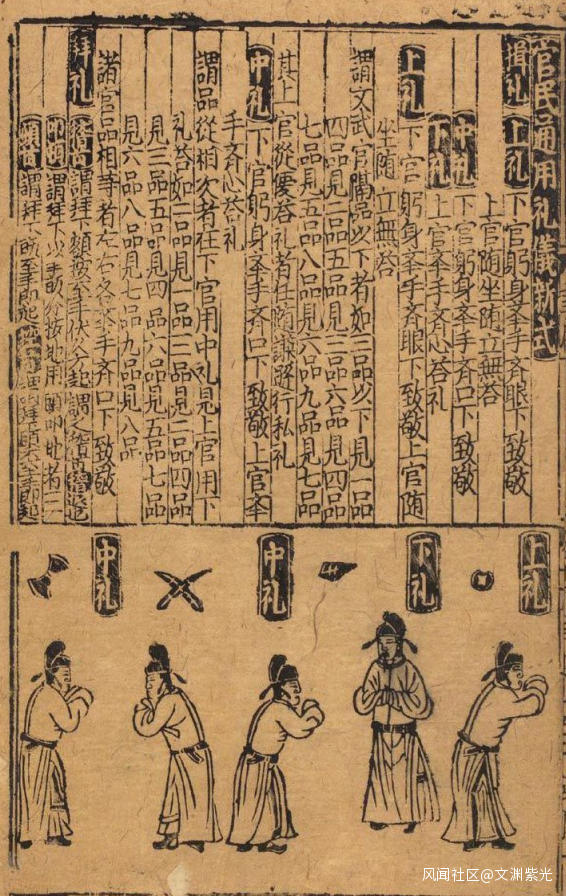 官民通用礼儀新式
揖礼 上礼 下官躬身举手齐眼下致敬
上官随坐随立無荅
中礼 下官躬身举手齐口下致敬
下礼 上官举手齐心荅礼
上礼 下官躬身举手齐眼下致敬上官随
坐随立無荅
謂文武官 品以下者如三品以下見一品
四品見二品五品見三品六品見四品
七品見五品八品見六品九品見七品
其上官從優荅礼者任随 行私礼
中礼 下官躬身举手齐口下致敬上官举
手齐心荅礼
謂品從相次者在下官用中礼見上官用下
礼荅如二品見一品三品見二品四品
見三品五品見四品六品見五品七品
見六品八品見七品九品見八品
諸官品相等者左右各举手齐口下致敬
拜礼 稽首 謂拜下額按至手伏久乃起謂之稽首
叩頭 謂拜下以手 分按地用頭叩地者
頓首 謂拜下 至手即起
上礼
下礼
中礼
中礼
风闻社区@文渊紫光